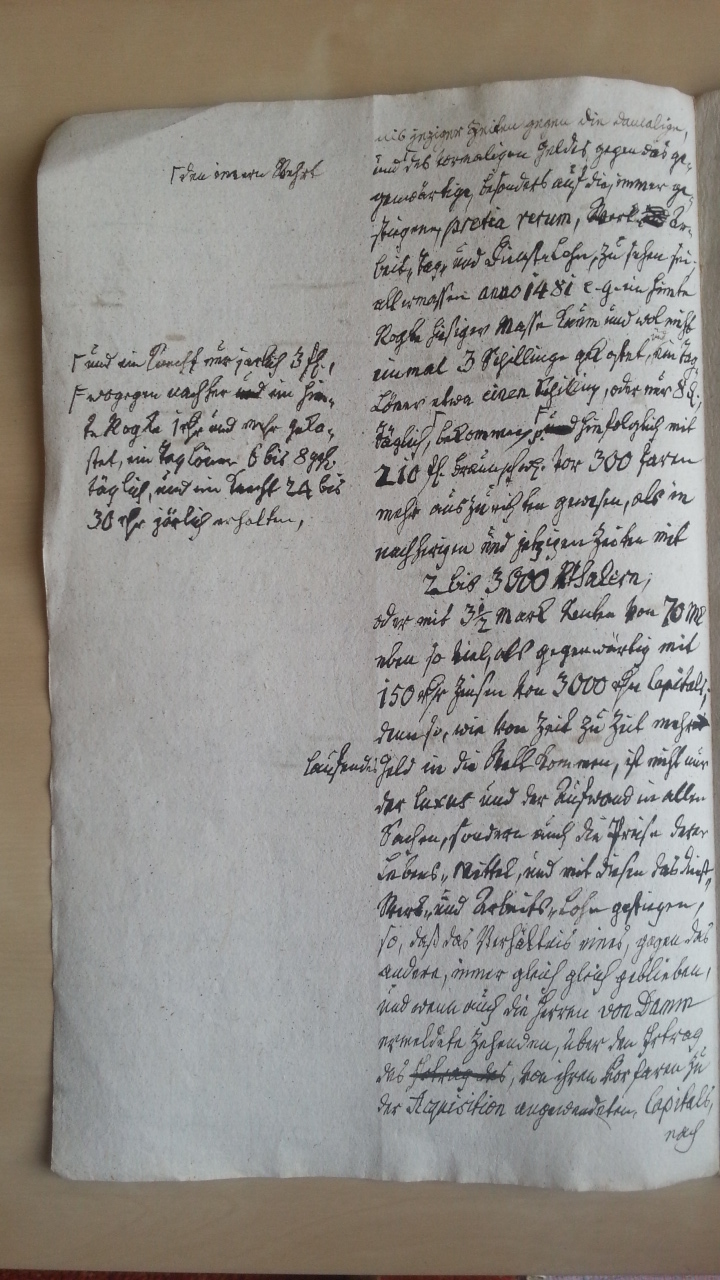 nis jeziger Zeiten gegen die damalige,
und des vormaligen Geldes gegen das ge-
genwärtige, besonders auf die immer ge-
stiegene, pretia rerum, Ar-
beit, Tag, und Dienst-Lohn, zu sehen sei.
allermassen anno 1481 e. g. ein Himte
Rogke hiesiger Masse kaum und wol nicht
einmal 3 Schillinge gekostet, ein Tag
Löner etwa einen Schilling, oder nur 8 d.
täglich, bekommen, und hinfolglich mit
210 fl. Braunschw. vor 300 Jaren
mehr auszurichten gewesen, als in
nachherigen und jetzigen Zeiten mit
2 bis 3000 Rthalern,
oder mit 3½ Mark Renten von 70 M
eben so viel, als gegenwärtig mit
150 rthr Zinsen von 3000 rthr Capital;
denn so, wie von Zeit zu Zeit mehr
laufendes Geld in die Welt kommen, ist nicht nur
der Luxus und der Aufwand in allen
Sachen, sondern auch die Preise derer
Lebens-Mittel, und mit diesen das Dienst-
Werk- und Arbeits-Lohn gestiegen,
so, daß das Verhältnis eines, gegen das
andere, immer gleich gleich geblieben,
und wenn auch die Herren von Damm
ermeldete Zehenden, über den Ertrag
des, von ihren Vorfaren zu
der Acquisition angewendeten Capitals,
nach
den innern Wehrt
und ein Knecht nur järlich 3 fl.,
wogegen nachher und ein Him-
te Rogke 1 rthr und mehr geko-
stet, ein Taglöner 6 bis 8 ggl.
täglich, und ein Knecht 24 bis
30 rthr järlich erhalten,